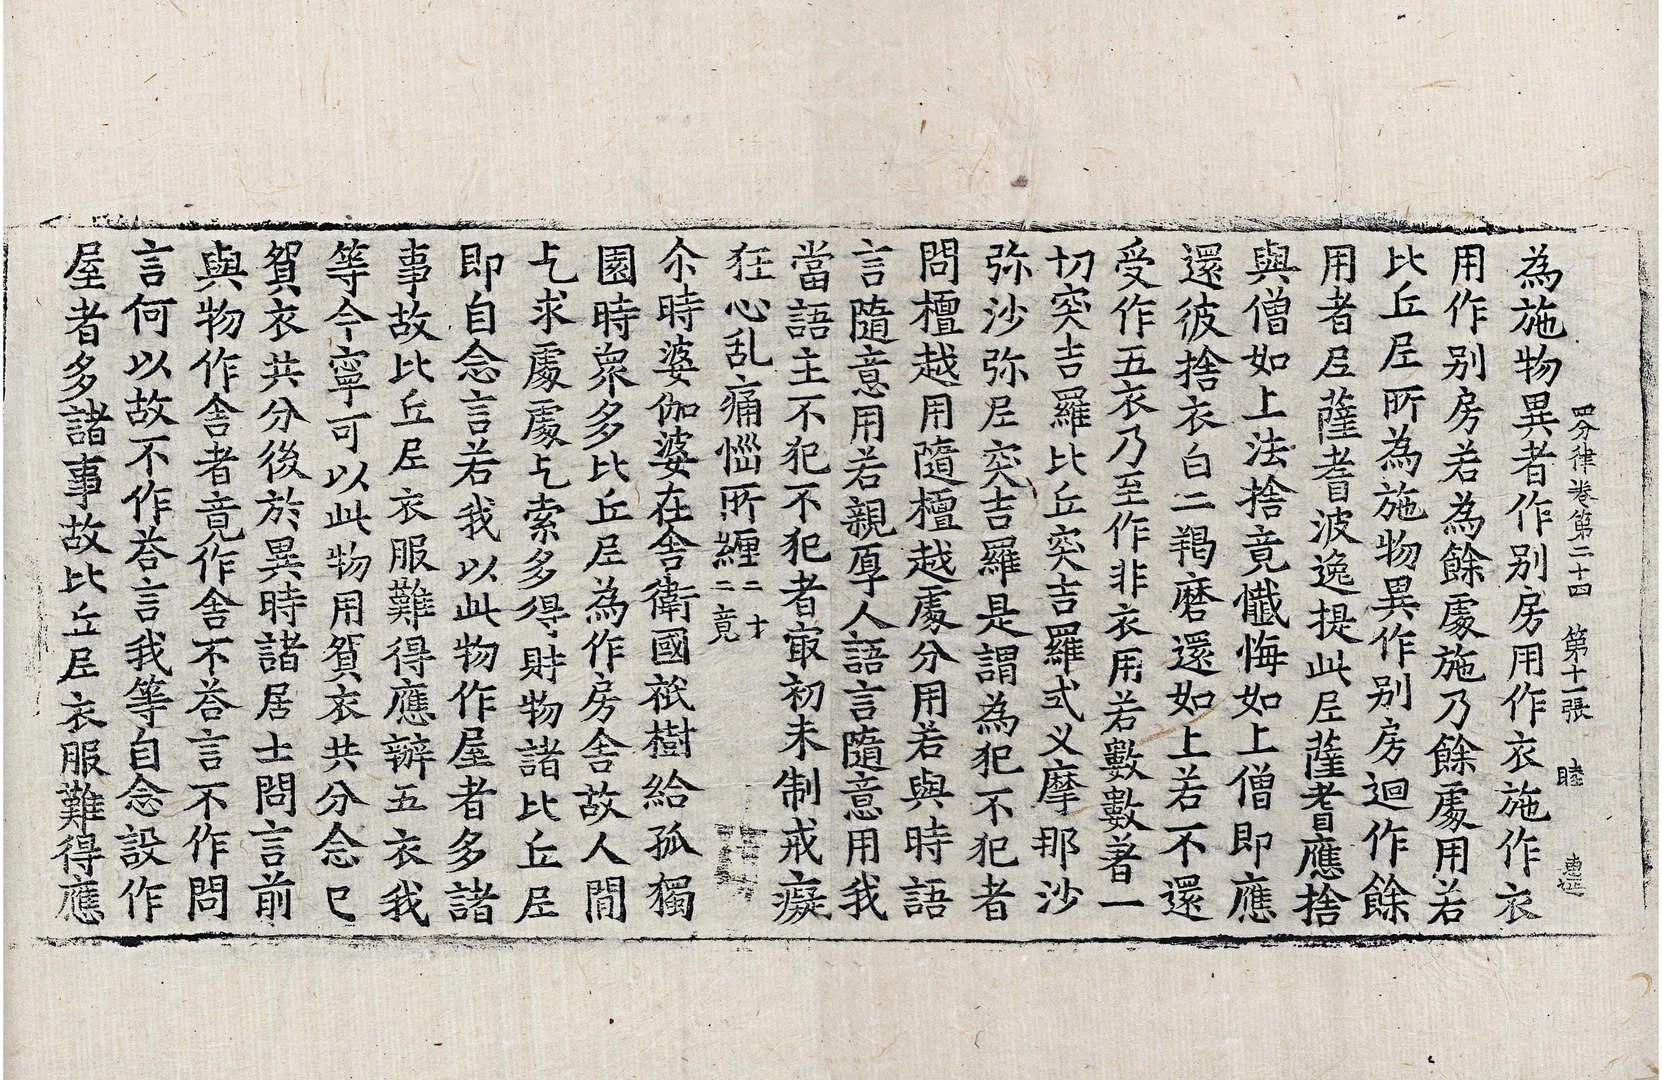 四分律卷第二十四 第十一張 睦
為施物異者作別房用作衣施作衣
用作別房若為餘處施乃餘處用若
比丘尼所為施物異作別房迴作餘
用者尼薩耆波逸提此尼薩耆應捨
與僧如上法捨竟懺悔如上僧即應
還彼捨衣白二羯磨還如上若不還
受作五衣乃至作非衣用若數數著一
切突吉羅比丘突吉羅式义摩那沙
弥沙弥尼突吉羅是謂為犯不犯者
問檀越用隨檀越處分用若與時語
言隨意用若親厚人語言隨意用我
當語主不犯不犯者㝡初未制戒癡
狂心乱痛惱所纏二十二竟
尒時婆伽婆在舍衛國祇樹給孤獨
園時衆多比丘尼為作房舍故人間
乞求處處乞索多得財物諸比丘尼
即自念言若我以此物作屋者多諸
事故比丘尼衣服難得應辦五衣我
等今寧可以此物用貿衣共分念已
貿衣共分後於異時諸居士問言前
與物作舍者竟作舍不荅言不作問
言何以故不作荅言我等自念設作
屋者多諸事故比丘尼衣服難得應